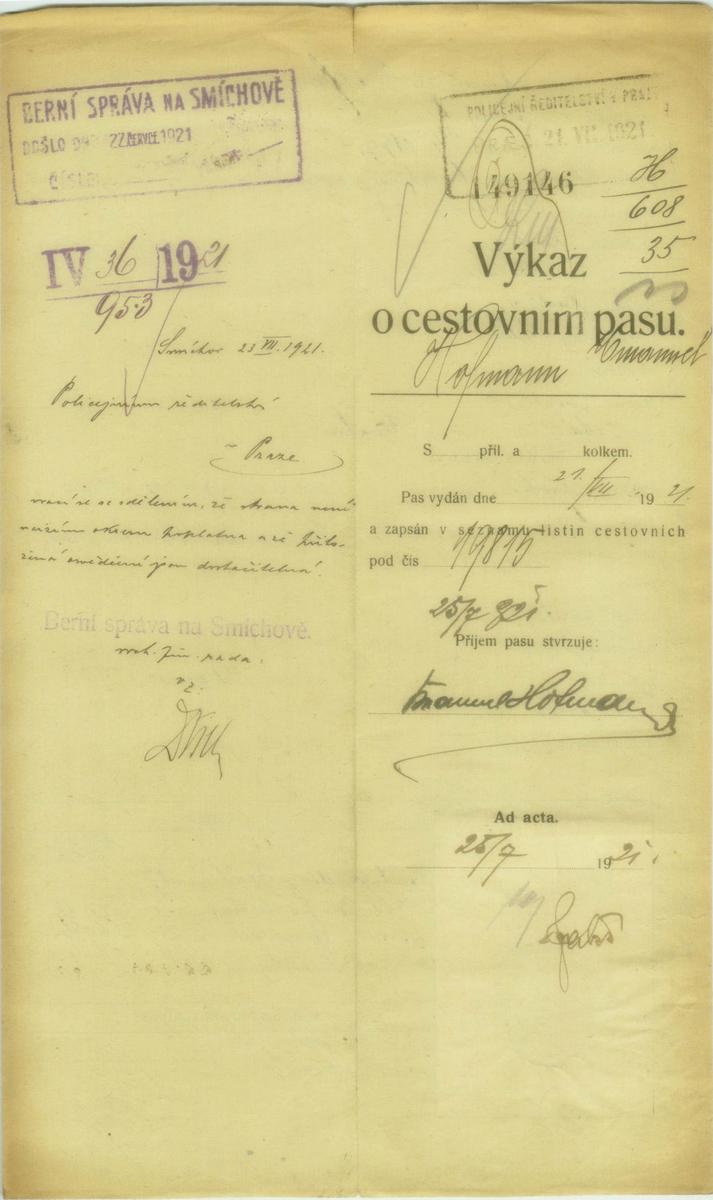 BERNÍ SPRÁVA NA SMÍCHOVĚ
DOŠLO DNE 22 ČERVENCE 1921
ČÍSLO
IV 36 1921
953
Smíchov 23 VII. 1921.
Policejnímu ředitelství
v Praze
vrací se se sdělením, že strana není
a že přilo-
žená osvědčení jsou dostačitelná.
Berní správa na Smíchově.
vrch. fin. rada.
POLICEJNÍ ŘEDITELSTVÍ V PRAZE
21. VII. 1921
149146
H
608
35
Výkaz
o cestovním pasu.
Hofmann Emanuel
S příl. a kolkem.
Pas vydán dne 21./VII 1921.
a zapsán v seznamu listin cestovních
pod čís 19815
25/7
Příjem pasu stvrzuje:
Emanuel Hofmann
Ad acta.
25/7 1921.